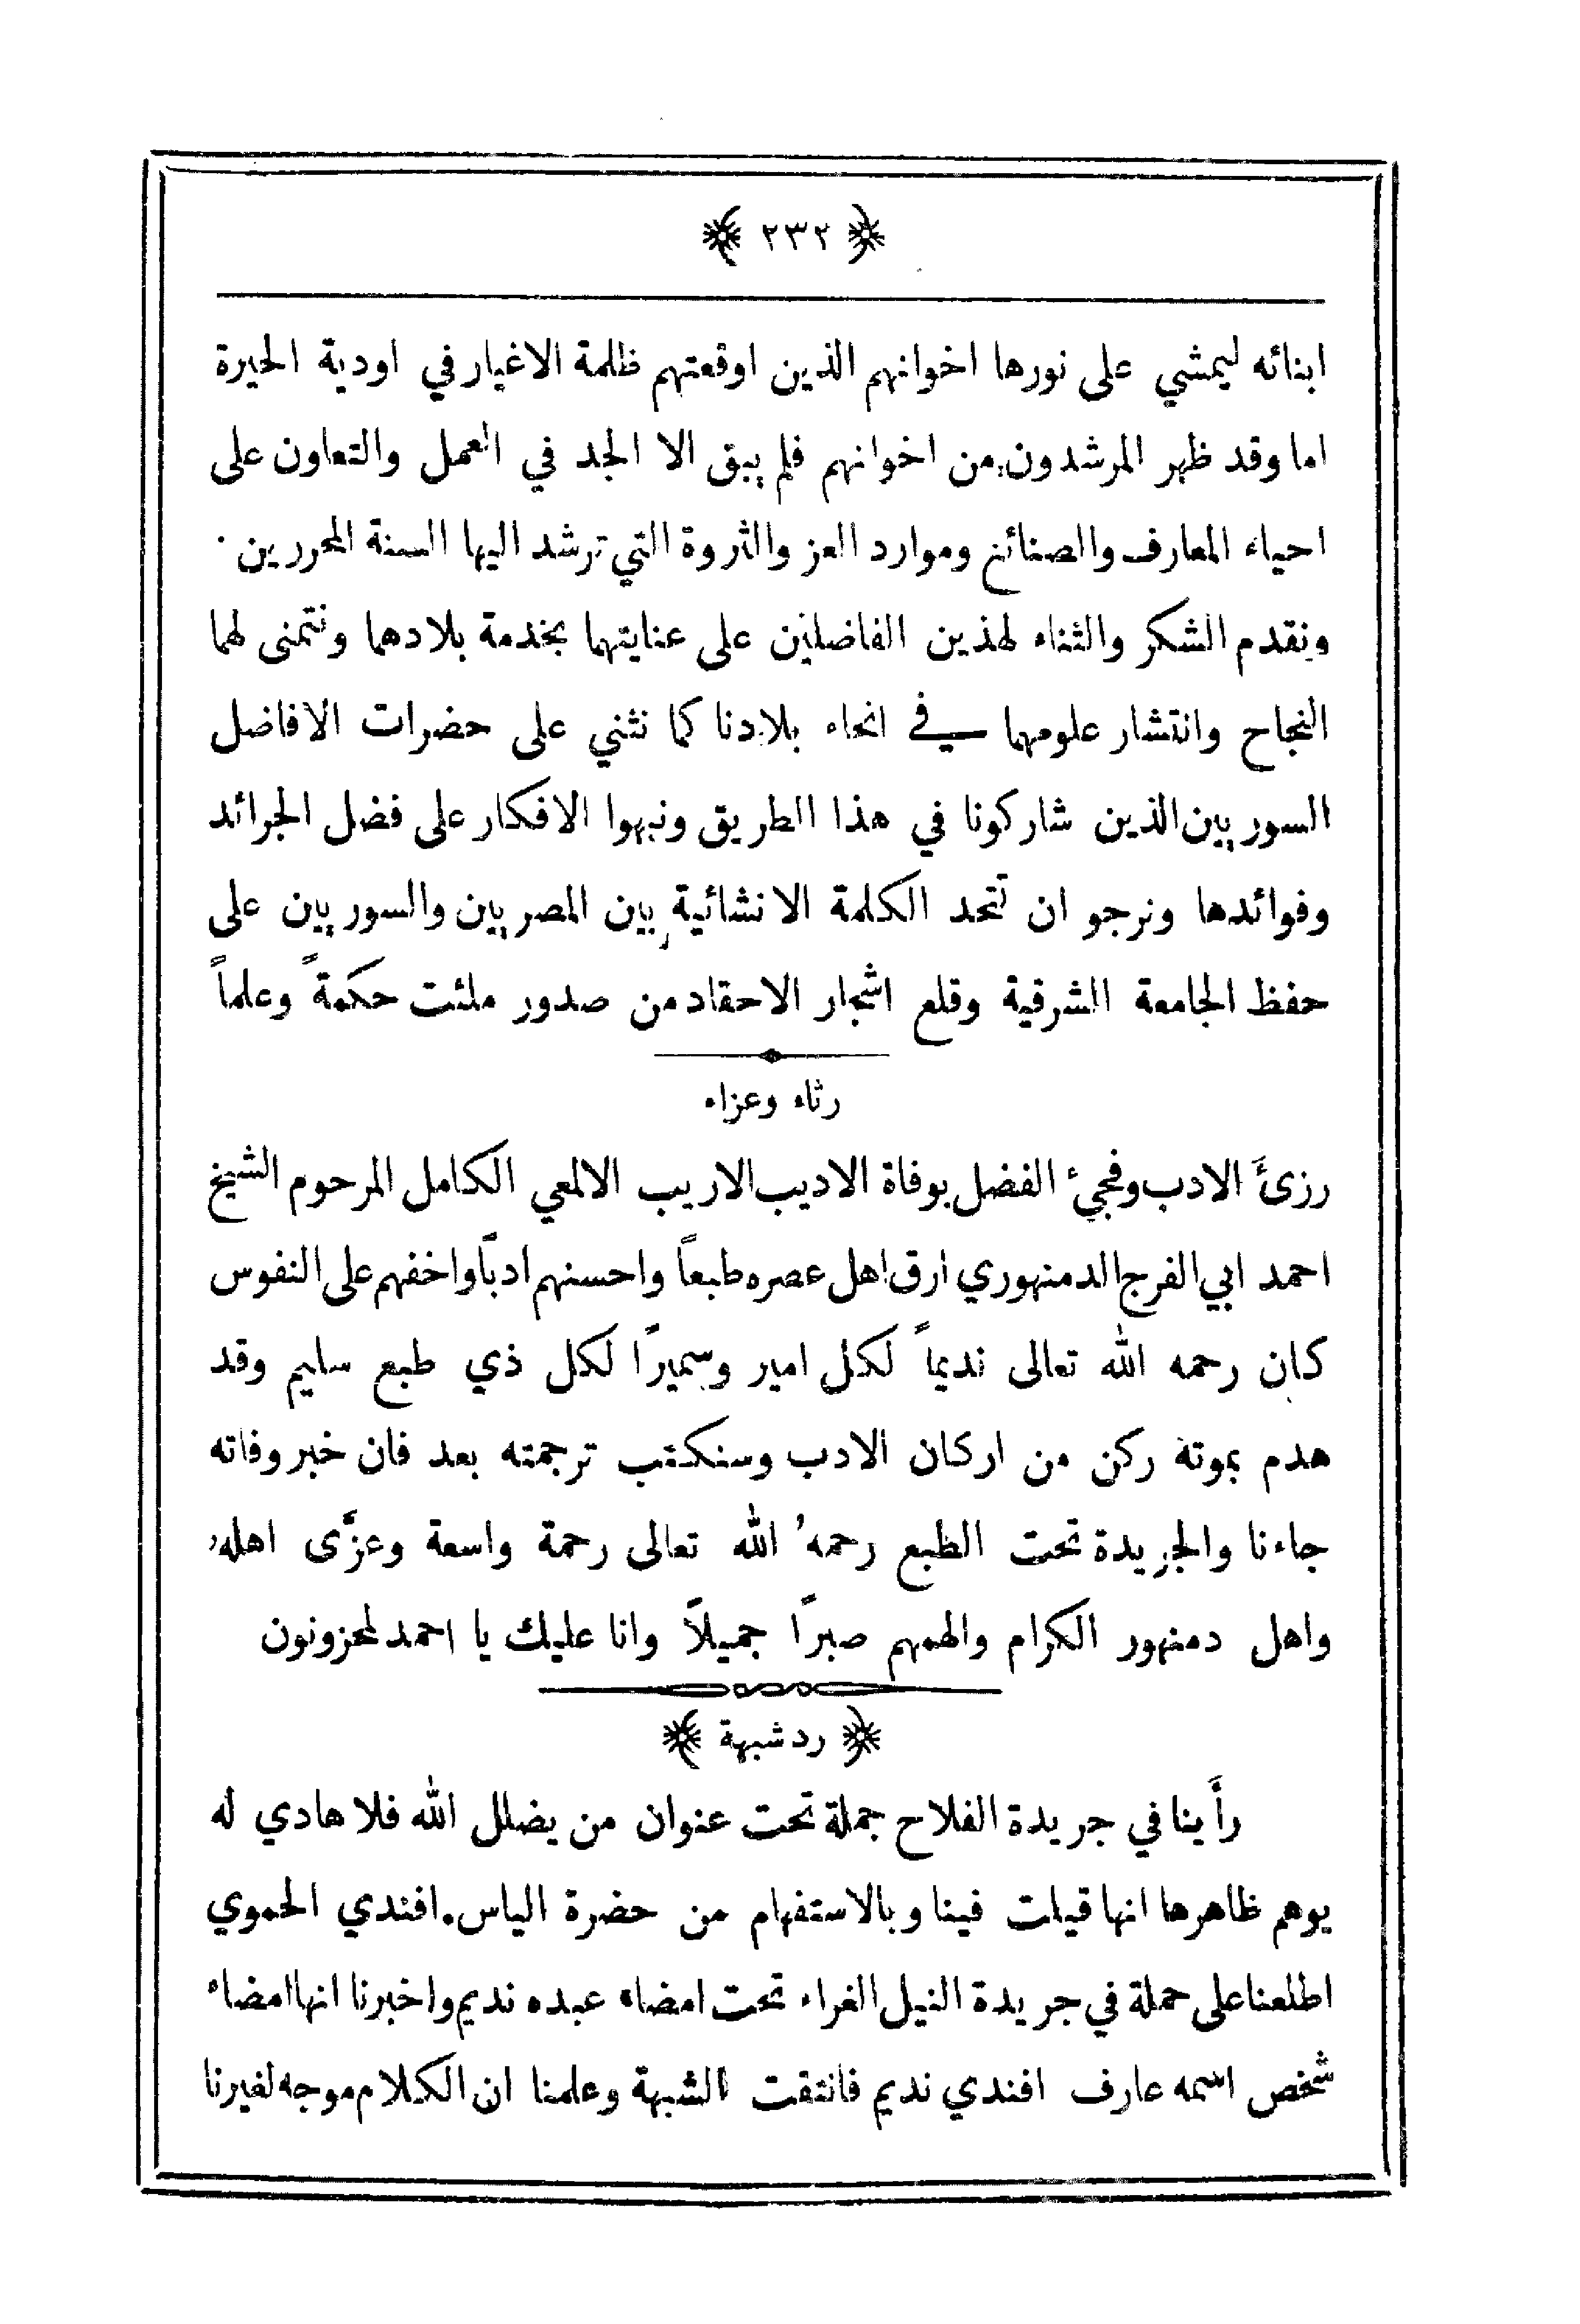 ٢٣٢
ابنائه ليمشي على نورها اخوانهم الذين اوقعتهم ظلمة الاغيار في اودية الحيرة
اما وقد ظهر المرشدون من اخوانهم فلم يبق الا الجد في العمل والتعاون على
احياء المعارف والصنائع وموارد العز والثروة التي ترشد اليها السنة المحررين ·
ونقدم الشكر والثناء لهذين الفاضلين على عنايتهما بخدمة بلادهما ونتمنى لهما
النجاح وانتشار علومهما في انحاء بلادنا كما نثني على حضرات الافاضل
السوريين الذين شاركونا في هذا الطريق ونبهوا الافكار على فضل الجرائد
وفوائدها ونرجو ان تتحد الكلمة الانشائية بين المصريين والسوريين على
حفظ الجامعة الشرقية وقلع اشجار الاحقاد من صدور ملئت حكمةً وعلماً
رثاء وعزاء
رزئَ الادب وفجيء الفضل بوفاة الاديب الاريب الالمعي الكامل المرحوم الشيخ
احمد ابي الفرج الدمنهوري ارق اهل عصره طبعاً واحسنهم ادبًا واخفهم على النفوس
كان رحمه الله تعالى نديماً لكل امير وسميرًا لكل ذي طبع سليم وقد
هدم بموته ركن من اركان الادب وسنكتب ترجمته بعد فان خبر وفاته
جاءنا والجريدة تحت الطبع رحمهُ الله تعالى رحمة واسعة وعزَّى اهلهُ
واهل دمنهور الكرام والهمهم صبرًا جميلاً وانا عليك يا احمد لمحزونون
رد شبهة
رأَينا في جريدة الفلاح جملة تحت عنوان من يضلل الله فلا هادي له
يوهم ظاهرها انها قيلت فينا وبالاستفهام من حضرة الياس افندي الحموي
اطلعنا على حملة في جريدة النيل الغراء تحت امضاء عبده نديم واخبرنا انها امضاء
شخص اسمه عارف افندي نديم فانتفت الشبهة وعلمنا ان الكلام موجه لغيرنا